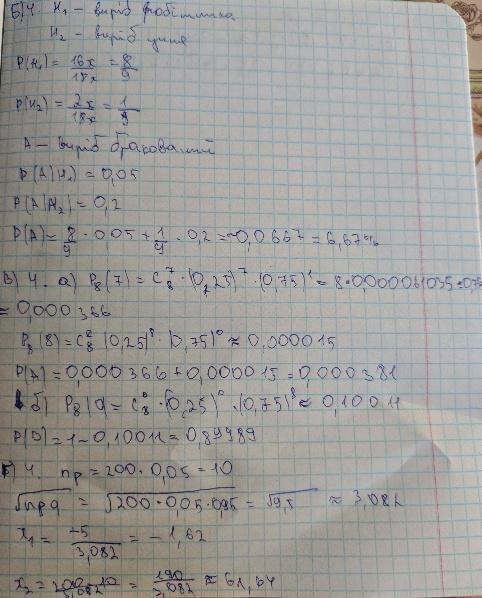 Б) 4. H₁ – виріб робітника
H₂ – виріб учня
P(H₁) = 16x/18x = 8/9
P(H₂) = 2x/18x = 1/9
A – виріб бракований
P(A|H₁) = 0,05
P(A|H₂) = 0,2
P(A) = 8/9 · 0,05 + 1/9 · 0,2 = ~0,0667 = 6,67%
В) 4. а) P₈(7) = C₈⁷ · (0,25)⁷ · (0,75)¹ = 8 · 0,000061035 · 0,75
= 0,000366
P₈(8) = C₈⁸ (0,25)⁸ · (0,75)⁰ ≈ 0,000015
P(A) = 0,000366 + 0,000015 = 0,000381
б) P₈(0) = C₈⁰ · (0,25)⁰ · (0,75)⁸ ≈ 0,10011
P(B) = 1 – 0,10011 = 0,89989
Г) 4. np = 200 · 0,05 = 10
√npq = √200 · 0,05 · 0,95 = √9,5 ≈ 3,082
x₁ = -5/3,082 = -1,62
x₂ = 200-10/3,082 = 190/3,082 ≈ 61,64